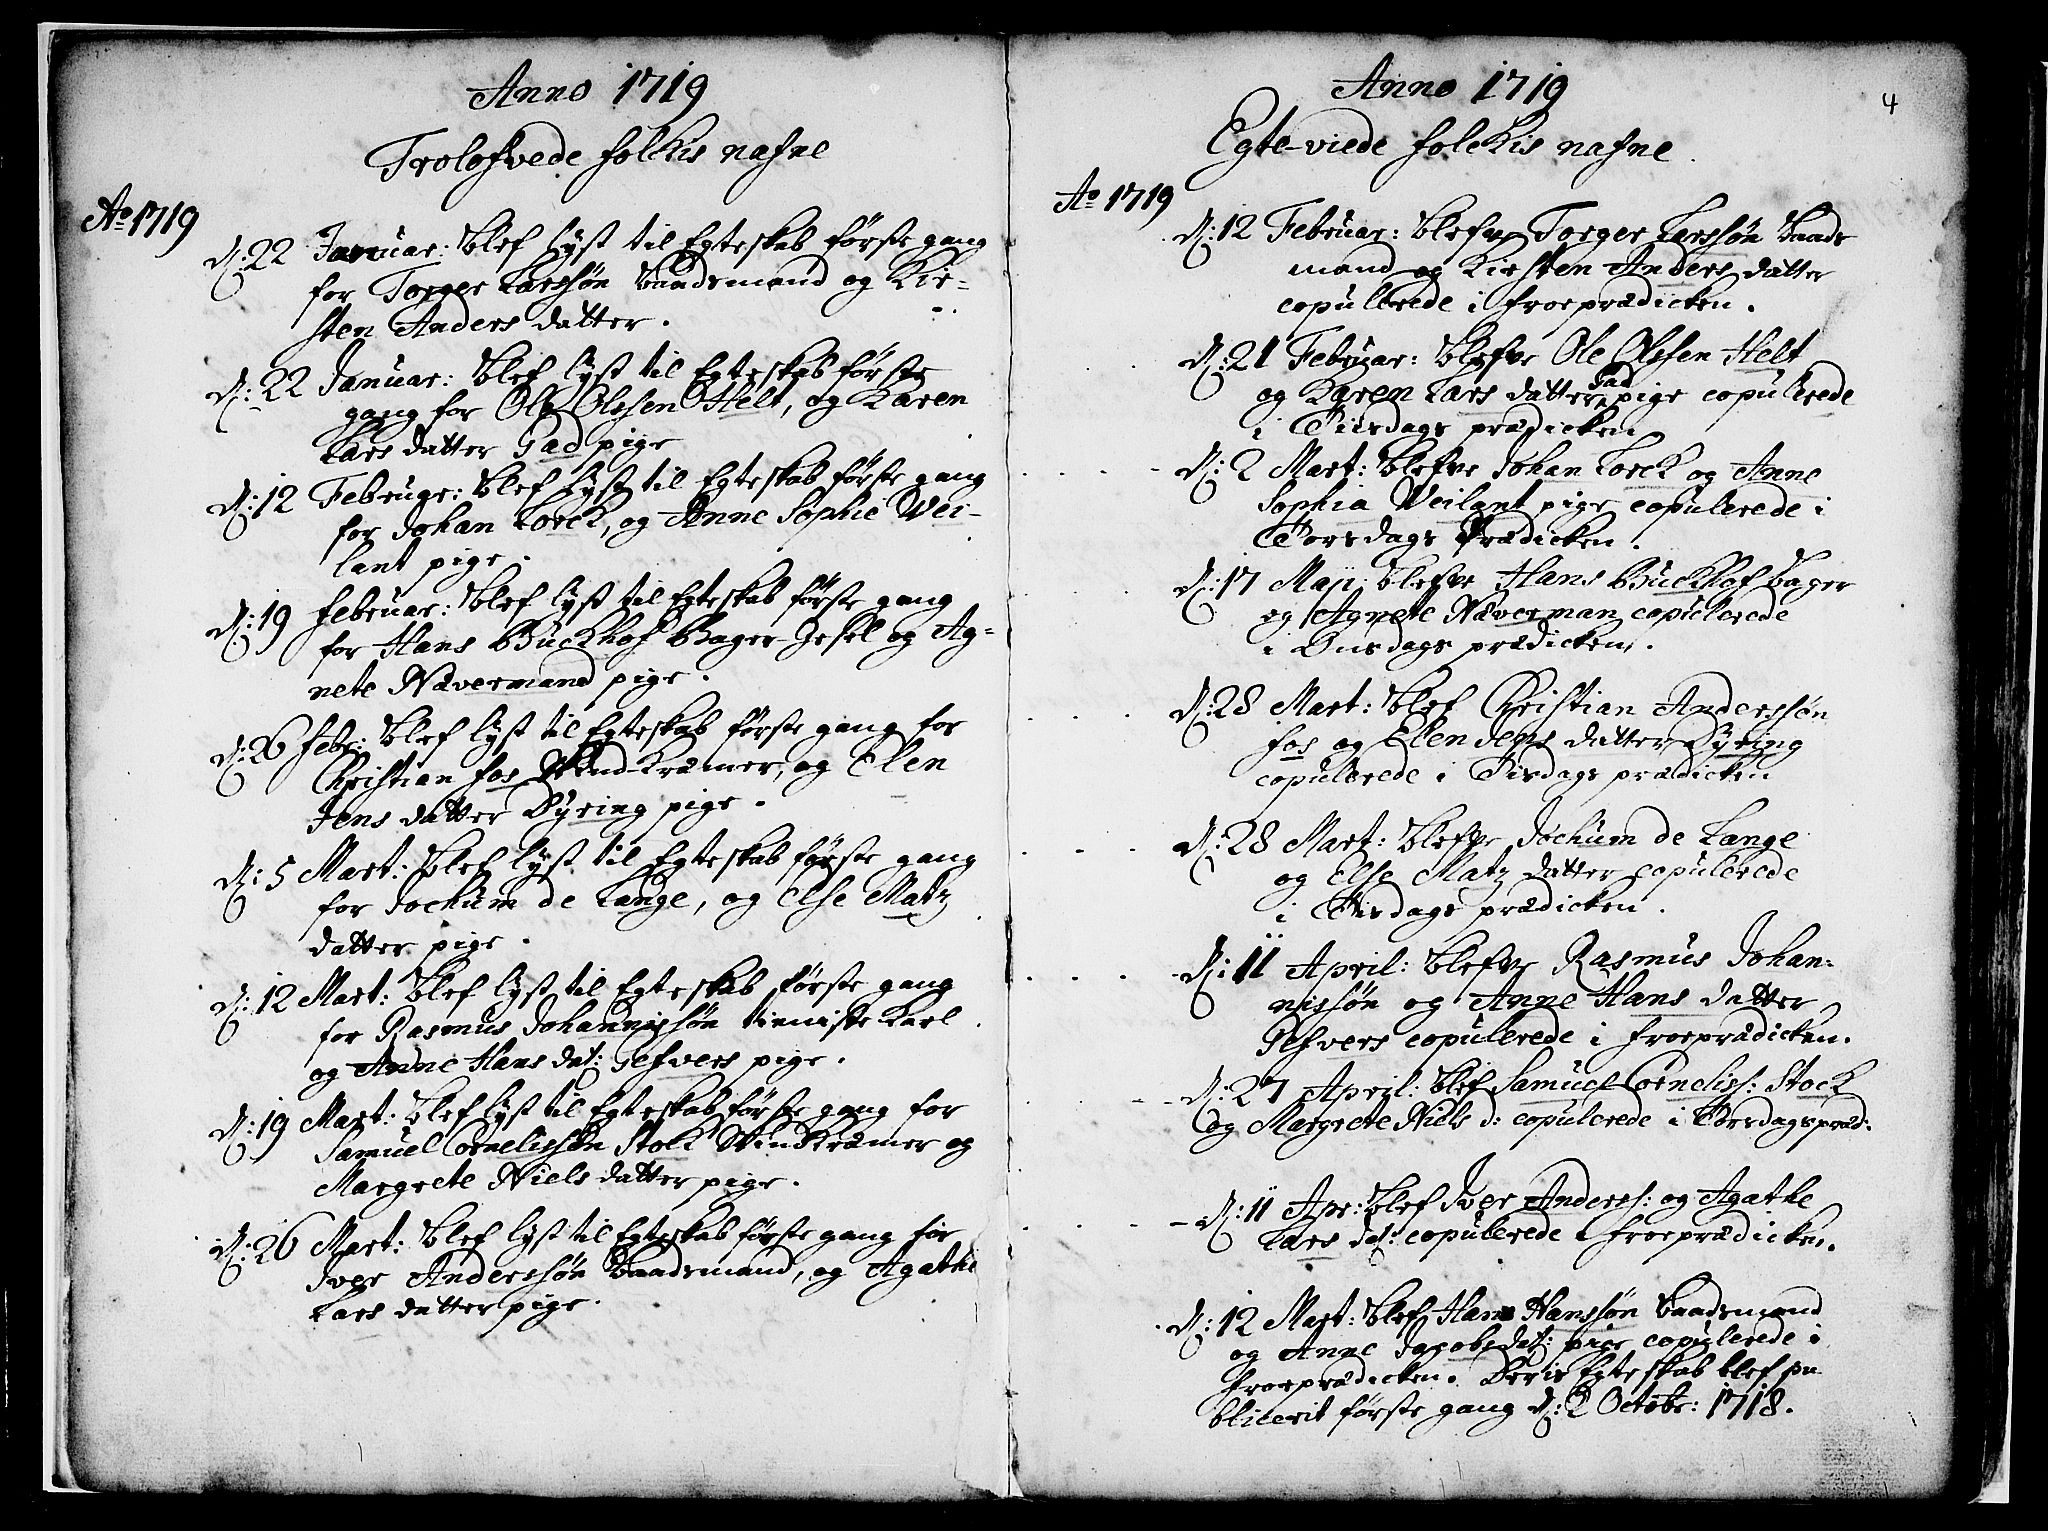 Anno 1719
Trolofvede folckis nafne
Ao 1719
d: 22 Januar: blef lyst til Egteskab første gang
for Torger Larssøn baadsmand og Kir-
sten Anders datter.
d: 22 Januar: blef lyst til Egteskab første
gang for Ole Olssen Helt, og Karen
Lars datter Gad pige
d: 12 Februar: blef lyst til Egteskab første gang
for Johan Lorck, og Anne Sophie Wei-
lant pige.
d: 19 februar: blef lyst til Egteskab første gang
for Hans Buckhof Bager-Gesel og Ag-
nete Nævermand pige.
d: 26 febr: blef lyst til Egteskab første gang for
Christian fos Wind-Kræmer, og Elen
Jens datter Dyring pige.
d: 5 Mart: blef lyst til Egteskab første gang
for Jochum de Lange, og Else Matz
datter pige.
d: 12 Mart: blef lyst til Egteskab første gang
for Rasmus Johannissøn tieniste Karl
og Anne Hans dat: Gefvers pige.
d: 19 Mart: blef lyst til Egteskab første gang for
Samuel Cornelissøn Stok Windkræmer og
Margrete Niels datter pige.
d: 26 Mart: blef lyst til Egteskab første gang for
Iver Anderssøn baadsmand, og Agathe
Lars datter pige.
Anno 1719
4
Egte-viede folckis nafne.
Ao 1719
d: 12 Februar: blefve Torger Larssøn baads
mand og Kirsten Anders datter
copulerede i froeprædicken.
d: 21 Februar: blefve Ole Olssen Helt
og Karen Lars datter Gad pige copulerede
i Tiisdags prædicken
d: 2 Mart: blefve Johan Lorck og Anne
Sophia Weilant pige copulerede i
Torsdags Prædicken.
d: 17 Maji: blefve Hans Buckhof bager
og Agnete Næverman copulerede
i Onsdags prædicken.
d: 28 Mart: blef Christian Anderssøn
fos og Elen Jens datter Dyring
copulerede i Tisdags prædicken
d: 28 Mart: blefve Jochum de Lange
og Else Matz datter copulerede
i Tisdags prædicken.
d: 11 April: blefve Rasmus Johan-
nissøn og Anne Hans datter
Gefvers copulerede i froeprædicken.
d: 27 April: blef Samuel Corneliss: Stock
og Margrete Niels d: copulerede i Torsdagspræd:
d: 11 Apr: blef Iver Anderss: og Agathe
Lars dat: copulerede i froeprædicken.
d: 12 Mart: blef Hans Hanssøn baadsmand
og Anne Jacobs dat: pige copulerede i
froeprædicken. Deris Egteskab blef pu
blicerit første gang d: 2 Octobr: 1718.